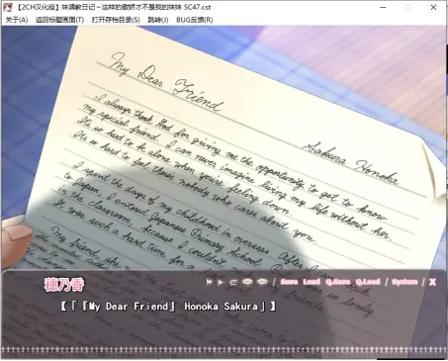 【2CH汉化组】妹调教日记~这样的傲娇才不是我的妹妹 SC47.cst
关于(A) 返回标题画面(T) 打开存档目录(S) 跳转(J) BUG反馈(R)
My Dear Friend
Sakura Honoka
I always thank God for giving me the opportunity to get to know
my special friend. I can never imagine living my life without her
It's so hard to be alone when you're feeling down
It's so hard to feel there's nobody who cares about you
I spent the days of my childhood in overseas. After I came
to Japan, I entered Japanese Primary School,
in the classroom, because I couldn't
I ever such a hard time for a
My friend, she
穂乃香
Save Load Q.Save Q.Load / System / X
【「『My Dear Friend』 Honoka Sakura」】